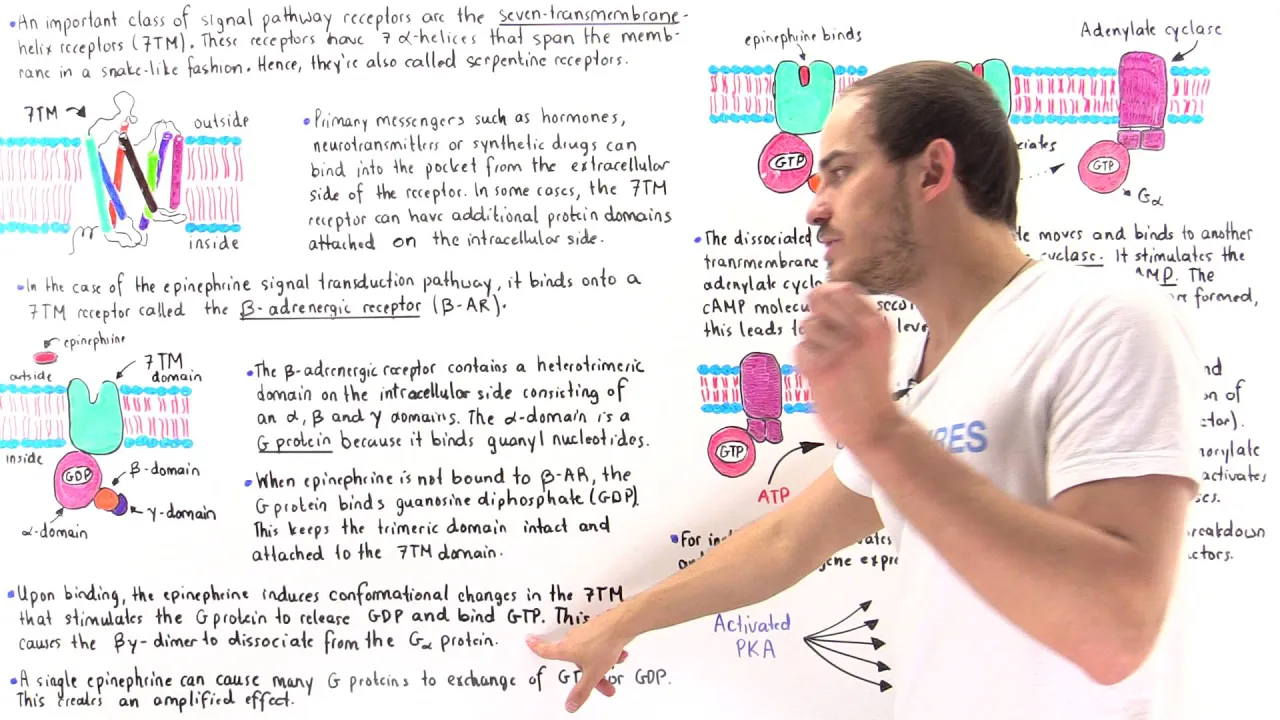 •An important class of signal pathway receptors are the seven-transmembrane-
helix receptors (7TM). These receptors have 7 α-helices that span the memb-
rane in a snake-like fashion. Hence, they're also called serpentine receptors.
7TM
outside
inside
•Primary messengers such as hormones,
neurotransmitters or synthetic drugs can
bind into the pocket from the extracellular
side of the receptor. In some cases, the 7TM
receptor can have additional protein domains
attached on the intracellular side.
•In the case of the epinephrine signal transduction pathway, it binds onto a
7TM receptor called the β-adrenergic receptor (β-AR).
epinephrine
outside
7TM
domain
inside
GDP
β-domain
γ-domain
α-domain
•The β-adrenergic receptor contains a heterotrimeric
domain on the intracellular side consisting of
an α, β and γ domains. The α-domain is a
G protein because it binds guanyl nucleotides.
•When epinephrine is not bound to β-AR, the
G protein binds guanosine diphosphate (GDP).
This keeps the trimeric domain intact and
attached to the 7TM domain.
•Upon binding, the epinephrine induces conformational changes in the 7TM
that stimulates the G protein to release GDP and bind GTP. This
causes the βγ-dimer to dissociate from the Gα protein.
•A single epinephrine can cause many G proteins to exchange of for GDP.
This creates an amplified effect.
epinephrine binds
Adenylate cyclase
GTP
GTP
Gα
•The dissociated moves and binds to another
cyclase. It stimulates the
The
cAMP formed,
this leads to
GTP
ATP
of
breakdown
•For
Activated
PKA